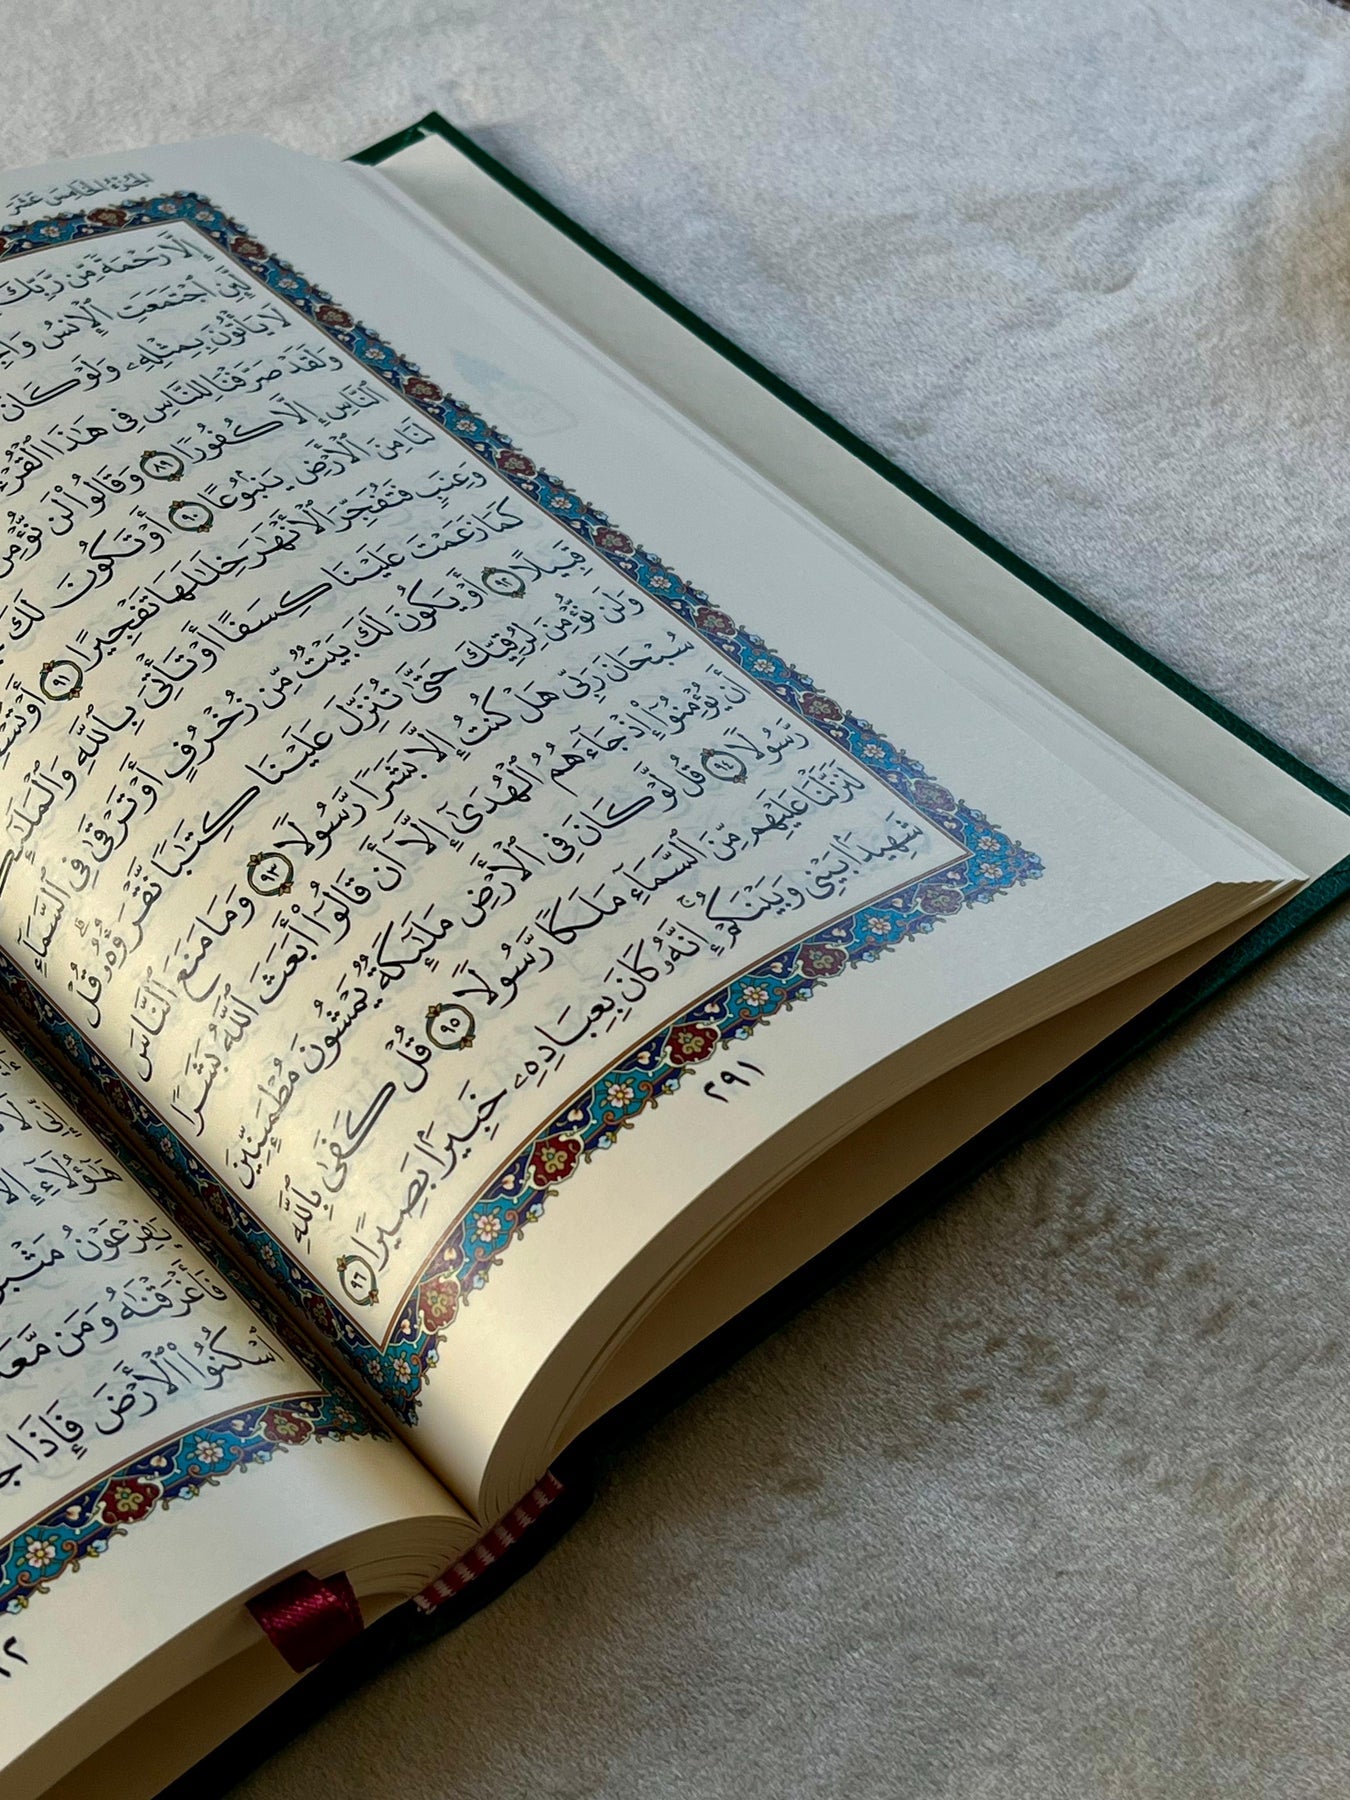 الجزء الخامس عشر
إِلَّا رَحْمَةً مِّن رَّبِّكَ
لَّئِنِ ٱجْتَمَعَتِ ٱلْإِنسُ
لَا يَأْتُونَ بِمِثْلِهِۦ وَلَوْ كَانَ
وَلَقَدْ صَرَّفْنَا لِلنَّاسِ فِى هَٰذَا
ٱلنَّاسِ إِلَّا كُفُورًا ٨٩ وَقَالُوا۟ لَن
لَنَا مِنَ ٱلْأَرْضِ يَنۢبُوعًا ٩٠ أَوْ تَكُونَ لَكَ
وَعِنَبٍ فَتُفَجِّرَ ٱلْأَنْهَٰرَ خِلَٰلَهَا تَفْجِيرًا ٩١ أَوْ
كَمَا زَعَمْتَ عَلَيْنَا كِسَفًا أَوْ تَأْتِىَ بِٱللَّهِ
قَبِيلًا ٩٢ أَوْ يَكُونَ لَكَ بَيْتٌ مِّن زُخْرُفٍ أَوْ تَرْقَىٰ فِى ٱلسَّمَآءِ
وَلَن نُّؤْمِنَ لِرُقِيِّكَ حَتَّىٰ تُنَزِّلَ عَلَيْنَا كِتَٰبًا نَّقْرَؤُهُۥ ۗ قُلْ
سُبْحَانَ رَبِّى هَلْ كُنتُ إِلَّا بَشَرًا رَّسُولًا ٩٣ وَمَا مَنَعَ ٱلنَّاسَ
أَن يُؤْمِنُوٓا۟ إِذْ جَآءَهُمُ ٱلْهُدَىٰٓ إِلَّآ أَن قَالُوٓا۟ أَبَعَثَ ٱللَّهُ بَشَرًا
رَّسُولًا ٩٤ قُل لَّوْ كَانَ فِى ٱلْأَرْضِ مَلَٰٓئِكَةٌ يَمْشُونَ مُطْمَئِنِّينَ
لَنَزَّلْنَا عَلَيْهِم مِّنَ ٱلسَّمَآءِ مَلَكًا رَّسُولًا ٩٥ قُلْ كَفَىٰ بِٱللَّهِ
شَهِيدًۢا بَيْنِى وَبَيْنَكُمْ ۚ إِنَّهُۥ كَانَ بِعِبَادِهِۦ خَبِيرًۢا بَصِيرًا ٩٦
٢٩١
هَٰٓؤُلَآءِ
يَٰفِرْعَوْنُ
فَأَغْرَقْنَٰهُ وَمَن
ٱسْكُنُوا۟ ٱلْأَرْضَ فَإِذَا